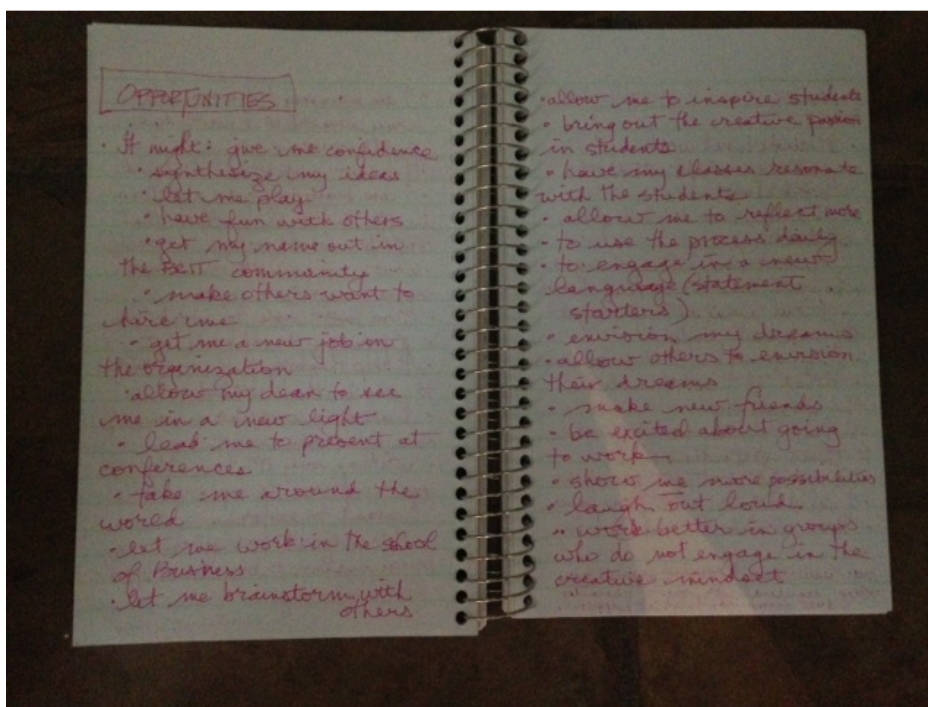 OPPORTUNITIES
• It might: give me confidence
• synthesize my ideas
• let me play
• have fun with others
• get my name out in
the community
• make others want to
hire me
• get me a new job in
the organization
• allow my dean to see
me in a new light
• lead me to present at
conferences
• take me around the
world
• let me work in the school
of Business
• let me brainstorm with
others
• allow me to inspire students
• bring out the creative passion
in students
• have my classes resonate
with the students
• allow me to reflect more
• to use the process daily
• to engage in a new
language (statement
starters)
• envision my dreams
• allow others to envision
their dreams
• make new friends
• be excited about going
to work
• show me more possibilities
• laugh out loud
• work better in groups
who do not engage in the
creative mindset